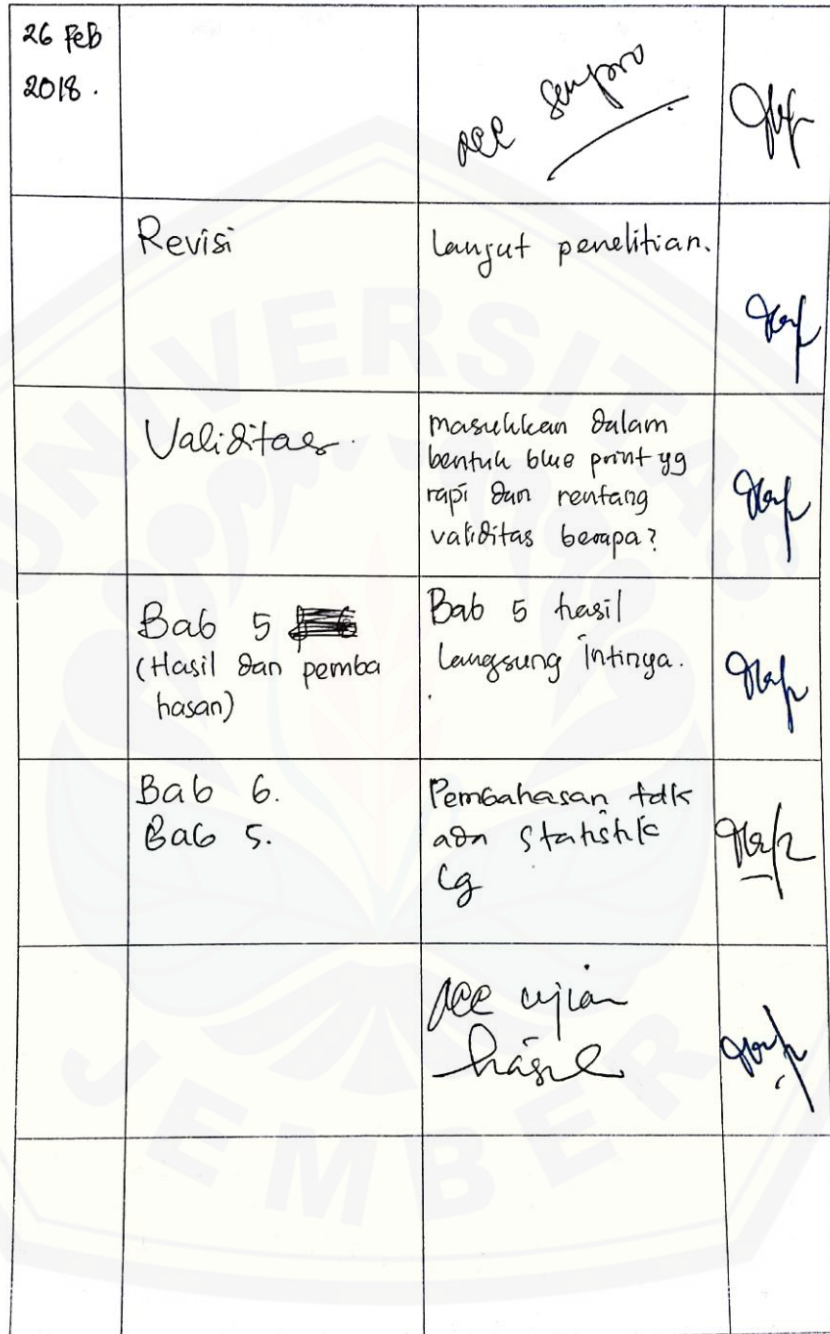 26 Feb
2018.
acc sempro
Revisi
Lanjut penelitian.
Validitas.
masukkan dalam
bentuk blue print yg
rapi dan rentang
validitas berapa?
Bab 5
(Hasil dan pemba
hasan)
Bab 5 hasil
Langsung intinya.
Bab 6.
Bab 5.
Pembahasan tdk
ada statistik
lg
acc ujian
hasil
UNIVERSITAS
JEMBER